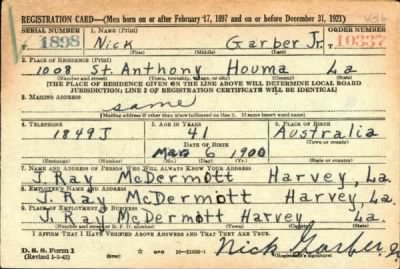 REGISTRATION CARD—(Men born on or after February 17, 1897 and on or before December 31, 1921)
SERIAL NUMBER 1. NAME (Print) ORDER NUMBER
T 1898 Nick Garber Jr. T 10337
(First) (Middle) (Last)
2. PLACE OF RESIDENCE (Print)
1008 St. Anthony Houma La
(Number and street) (Town, township, village, or city) (County) (State)
[THE PLACE OF RESIDENCE GIVEN ON THE LINE ABOVE WILL DETERMINE LOCAL BOARD
JURISDICTION; LINE 2 OF REGISTRATION CERTIFICATE WILL BE IDENTICAL]
3. MAILING ADDRESS
same
[Mailing address if other than place indicated on line 2. If same insert word same]
4. TELEPHONE 5. AGE IN YEARS 6. PLACE OF BIRTH
1849J 41 Australia
DATE OF BIRTH (Town or county)
Mar 6 1900
(Exchange) (Number) (Mo.) (Day) (Yr.) (State or country)
7. NAME AND ADDRESS OF PERSON WHO WILL ALWAYS KNOW YOUR ADDRESS
J. Ray McDermott Harvey, La.
8. EMPLOYER'S NAME AND ADDRESS
J. Ray McDermott Harvey, La.
9. PLACE OF EMPLOYMENT OR BUSINESS
J. Ray McDermott Harvey La.
(Number and street or R. F. D. number) (Town) (County) (State)
I AFFIRM THAT I HAVE VERIFIED ABOVE ANSWERS AND THAT THEY ARE TRUE.
D. S. S. Form 1
(Revised 1-1-42) GPO 16—21630-1 Nick Garber Jr
(Registrant's signature)